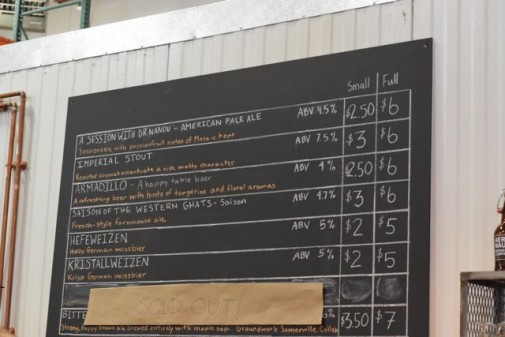 Small Full
A SESSION WITH DR NANDU - AMERICAN PALE ALE ABV 4.5% $2.50 $6
Sessionable with passionfruit notes of Mosaic hops
IMPERIAL STOUT ABV 7.5% $3 $6
Roasted aromas accentuate a rich malty character
ARMADILLO - A hoppy table beer ABV 4% $2.50 $6
A refreshing beer with hints of tangerine and floral aromas
SAISON OF THE WESTERN GHATS - Saison ABV 4.7% $3 $6
French-style farmhouse ale
HEFEWEIZEN ABV 5% $2 $5
Hazy German weissbier
KRISTALLWEIZEN ABV 5% $2 $5
Krisp German weissbier
SOLD OUT!
BITTE $3.50 $7
Strong, hoppy brown ale brewed entirely with maple sap. Groundwork Somerville Collab